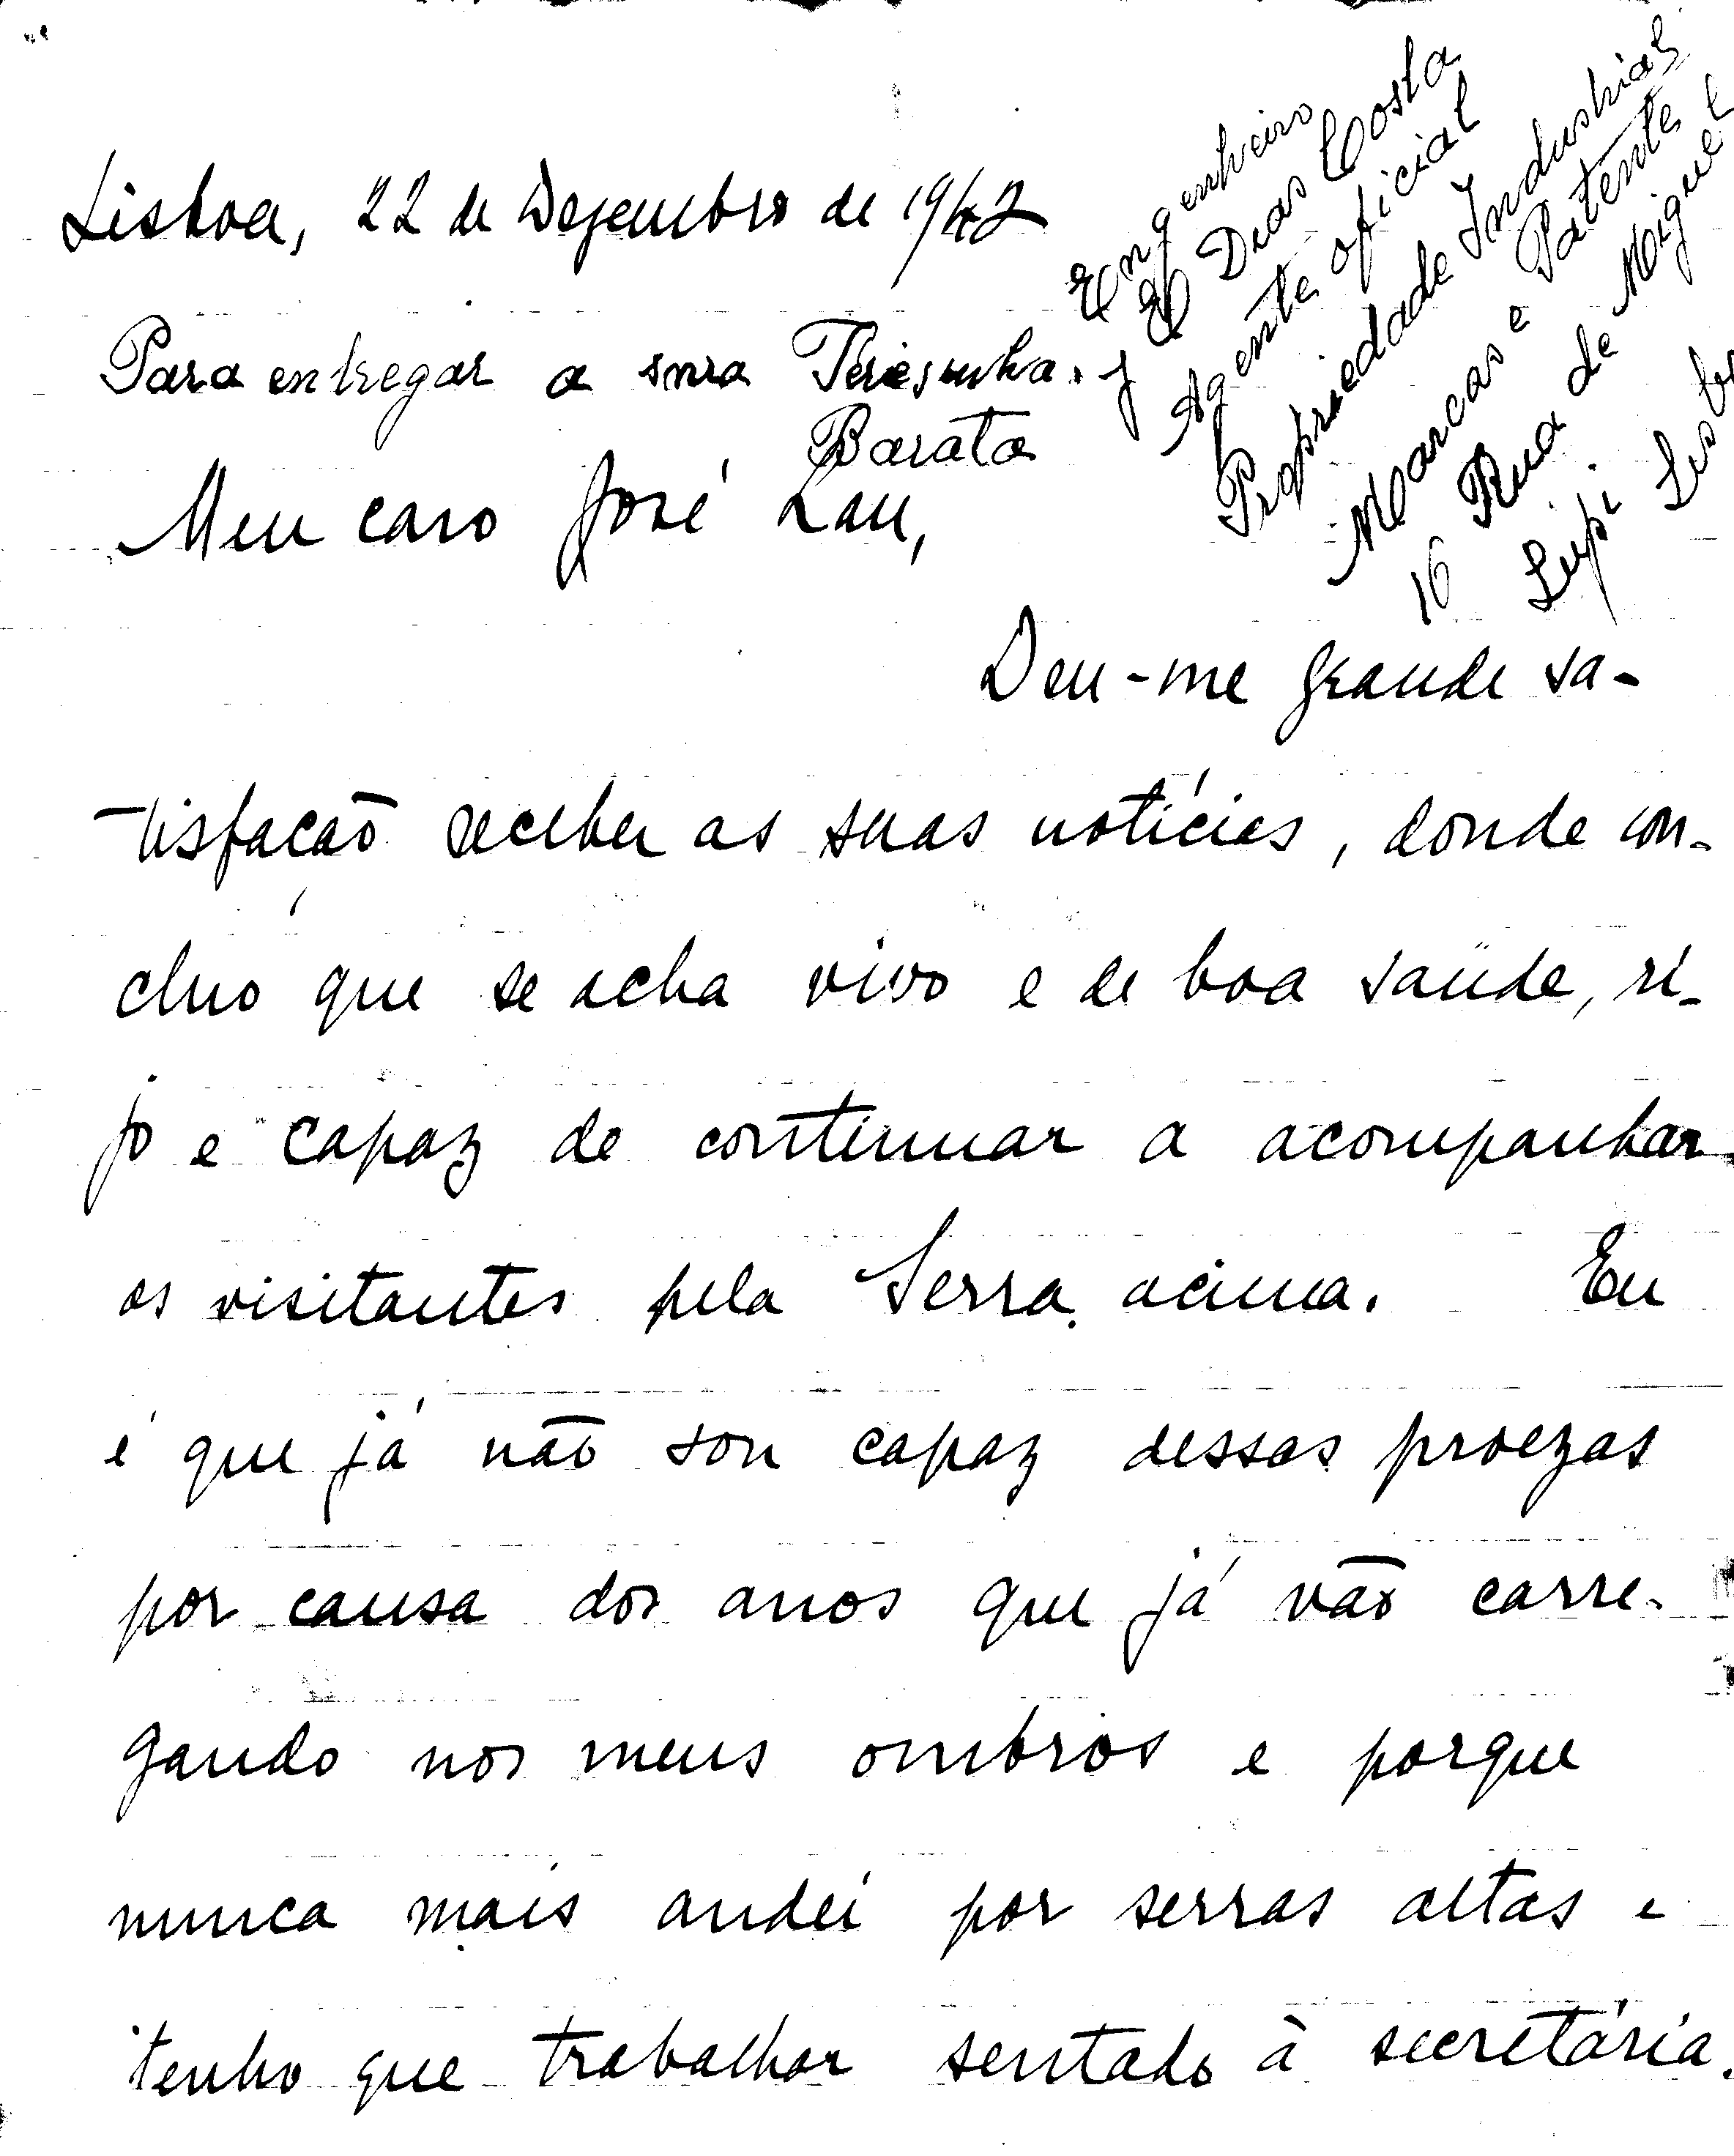 Lisboa, 22 de Dezembro de 1942
Para entregar a snra Teriesinha.
Barata
Meu caro José Lau,
Engenheiro
J E Dias Costa
Agente oficial
Propriedade Industrial
Marcas e Patente
16 Rua de Miguel
Lupi Lisb
Deu-me grande sa-
tisfação receber as suas notícias, donde con-
cluo que se acha vivo e de boa saúde, ri-
jo e capaz de continuar a acompanhar
os visitantes pela Serra acima. Eu
é que já não sou capaz dessas proezas
por causa dos anos que já vão carre-
gando nos meus ombros e porque
nunca mais andei por serras altas e
tenho que trabalhar sentado à secretária.